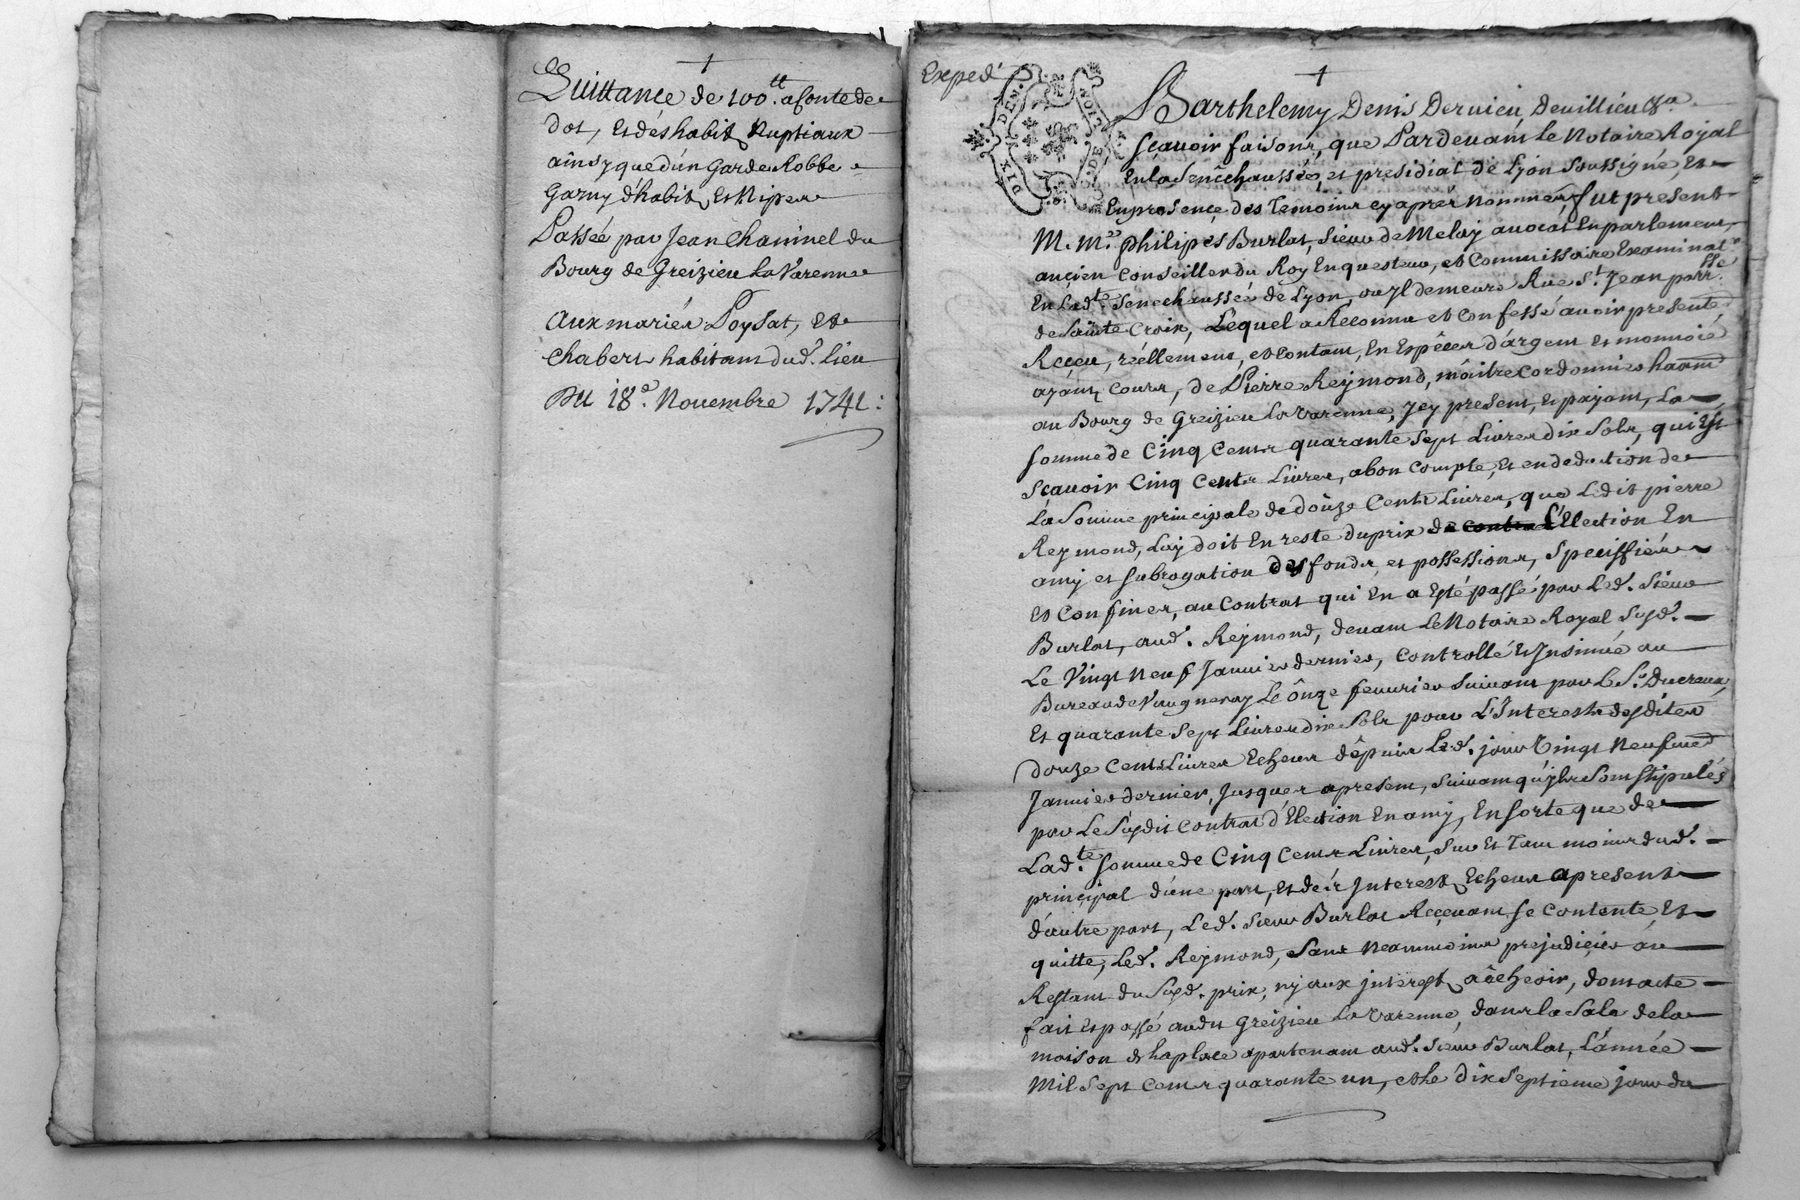 Quittance de 100.tt a Conte de
dot, Et dés habits Nuptiaux
ainsy que d'un Garde Robbe
Garny d'habits Et Nipes
Passée par Jean Chaninel du
Bourg de Greizieu La Varenne
Aux mariés Poysat, Et
Chabert habitans dud. lieu
Du 18e. Novembre 1741:
Exped.
DIX DEN. GN. DE LION
Barthelemy Denis Dervieu, Devillieu &a
sçavoir faisons, que Pardevant Le Notaire Royal
En La Sénéchaussée, et presidial de Lyon Soussigné, Et
En presence des Temoins cy aprés Nommés, fut present
M. Me. philipes Burlat, Sieur de Melay avocat En parlement,
ançien Conseiller du Roy Enquesteur, et Commissaire Examinatr
En Lad.te Senechaussée de Lyon, ou Il demeure Rue St. Jean parr.sse
de Sainte Croix, Lequel a Reconnu et Confessé avoir presente.
Reçeu, réellement, et Contant, En Espéces d'argent et monnoié
ayant cours, de Pierre Reymond, maître Cordonnier habitt
au Bourg de Greizieu La Varenne, Icy present, et payant, La
somme de Cinq Cents quarante Sept Livres dix Sols, qui Est
Scavoir Cinq Cents Livres, a bon Compte, Et en deduction de
La Somme principale de doûze Cents Livres, que Ledit pierre
Reymond, Luy doit En reste du prix de contra L'Election En
amy et subrogation des fonds, et possessions, Speciffiés
Et Confinés, au Contrat qui En a Esté passé par Led. Sieur
Burlat, aud. Reymond, devant Le Notaire Royal Susd.
Le Vingt Neuf Janvier dernier, Controllé Et Insinué au
Bureau de Vaugneray Le Ônze fevurier Suivant par Le Sr. Ducreux,
Et quarante Sept Livres dix Sols pour L'Interests desdites
douze Cents Livres Echeus dêpuis Led. jour Vingt Neufme
Janvier dernier, Jusques a present, suivant qu'ils Sont Stipulés
par Le Susdit Contrat d'Election En amy, En sorte que de
Lad.te somme de Cinq Cents Livres, Sur Et Tant moins dud.
principal d'une part, Et dés Interests Echeus a present
d'autre part, Led. Sieur Burlat Reçevant se Contente, Et
quitte, Led. Reymond, Sans Neanmoins prejudiçier au
Restant du Susd. prix, ny aux jnterests a êcheoir, dont acte
fait Et passé audit Greizieu La Varenne, dans la Sale de la
maison de la place apartenant aud. Sieur Burlat, L'année
Mil Sept Cents quarante un, et Le dix Septieme jour du